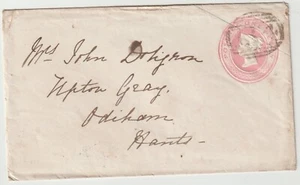 Mrs John Dolignon
Upton Gray.
Odiham.
Hants.